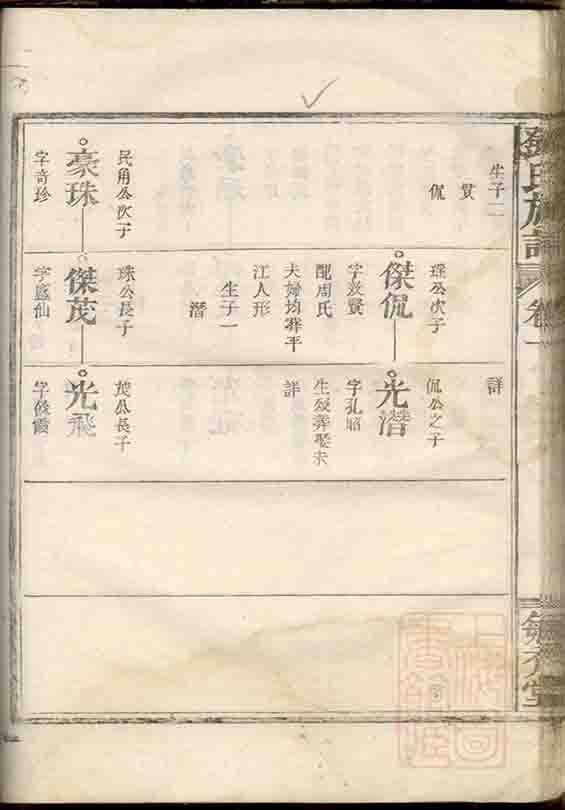 生子二
贤
侃
民角公次子
豪珠
字奇珍
珠公次子
傑侃
字羨賢
配周氏
夫婦均葬平
江人形
生子一
潛
珠公長子
傑茂
字盛仙
詳
侃公之子
光潛
字孔昭
生歿葬娶未
詳
茂公長子
光飛
字俊霞
氏族譜
卷一
堂